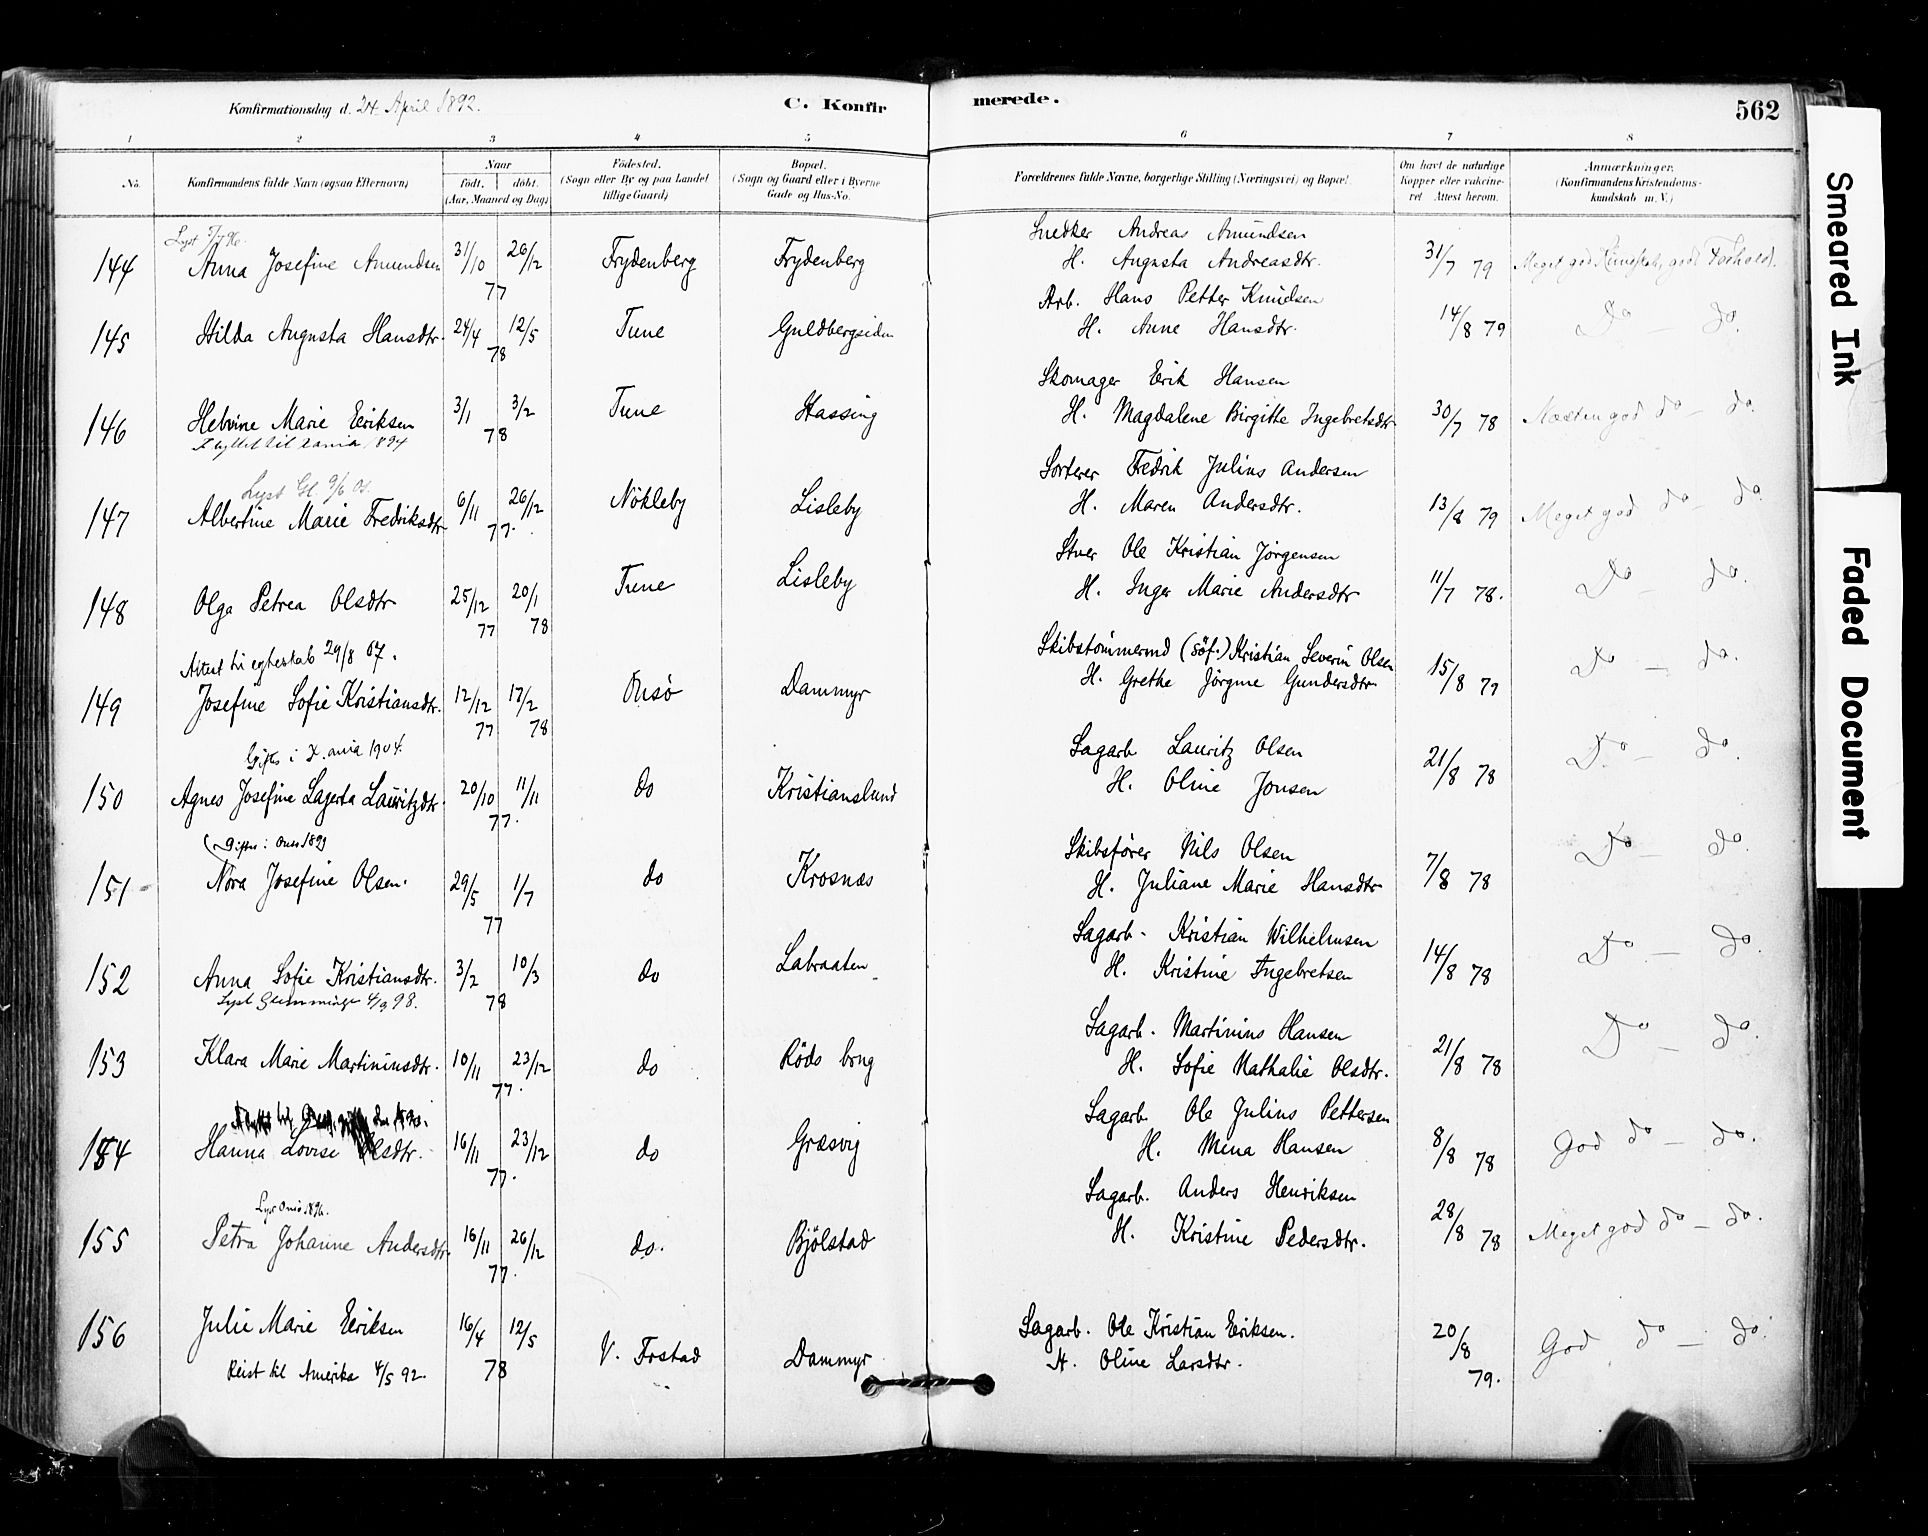 Konfirmationsdag d. 24 April 1892.
C. Konfirmerede.
562
1 2 3 4 5 6 7 8
No.
Konfirmandens fulde Navn (ogsaa Efternavn)
Naar
födt. döbt.
(Aar, Maaned og Dag)
Födested.
(Sogn eller By og paa Landet
tillige Gaard)
Bopæl.
(Sogn og Gaard eller i Byerne
Gade og Hus-No.
Forældrenes fulde Navne, borgerlige Stilling (Næringsvei) og Bopæl.
Om havt de naturlige
Kopper eller vakcine-
ret Attest herom.
Anmærkninger.
(Konfirmandens Kristendoms-
kundskab m. V.)
Lyst 5/7 96.
144 Anna Josefine Amundsen 31/10 26/12 77 Frydenberg Frydenberg
Snedker Andreas Amundsen
H. Augusta Andreasdtr. 31/7 79 Meget god Kundskab, godt Forhold.
145 Hilda Augusta Hansdtr. 24/4 12/5 78 Tune Guldbergsiden
Arb. Hans Petter Knudsen
H. Anne Hansdtr. 14/8 79 Do - do.
146 Helvine Marie Eeriksen 3/1 3/2 78 Tune Hassing
Flyttet til Xania 1894
Skomager Eerik Hansen
H. Magdalene Birgitte Ingebretsdtr 30/7 78 Næsten god do - do.
Lyst Gl. 9/6
147 Albertine Marie Fredriksdtr 6/11 26/12 77. Nökleby Lisleby
Sorterer Fredrik Julius Andersen
H. Maren Andersdtr. 13/8 79 Meget god do - do.
148 Olga Petrea Olsdtr 25/12 77 20/1 78 Tune Lisleby
Stuer Ole Kristian Jörgensen
H. Inger Marie Andersdtr 11/7 78. Do - do.
Attest til egteskab 29/8 07.
149 Josefine Sofie Kristiansdtr. 12/12 77 17/2 78 Onsö Dammyr
Skibstömmermd (Söf.) Kristian Severin Olsen
H. Grethe Jörgine Gundersdtr 15/8 79 Do - do.
Giftes i X.ania 1904.
150 Agnes Josefine Lagerta Lauritzdtr. 20/10 11/11 77. do Kristianslund
Sagarb Lauritz Olsen
H. Oline Jonsen 21/8 78 Do - do.
(Giftes i Onsö 1899
151 Nora Josefine Olsen. 29/5 1/7 77 do Krosnæs
Skibsförer Nils Olsen
H. Juliane Marie Hansdtr 7/8 78 Do - do.
152 Anna Sofie Kristiansdtr. 3/2 10/3 78 do Labraaten
Lyst Glemminge 4/9 98.
Sagarb. Kristian Wilhelmsen
H. Kristine Ingebretsen 14/8 78 Do - do.
153 Klara Marie Martiniusdtr. 10/11 23/12 77. do Röds brug
Sagarb. Martinius Hansen
H. Sofie Mathalie Olsdtr. 21/8 78 Do - do.
154 Hanna Lovise Olsdtr. 16/11 23/12 77. do Græsvig
Sagarb Ole Julius Pettersen
H. Mina Hansen 8/8 78 God do - do.
Lyst Onsö 1896.
155 Petra Johanne Andersdtr 16/11 26/12 77. do. Bjölstad
Sagarb. Anders Henriksen
H. Kristine Pedersdtr. 28/8 78 Meget god do - do.
156 Julie Marie Eeriksen 16/4 12/5 78 V. Frstad Dammyr
Reist til Amerika 4/5 92.
Sagarb. Ole Kristian Eeriksen.
H. Oline Larsdtr. 20/8 79. God do - do.
Smeared Ink
Faded Document